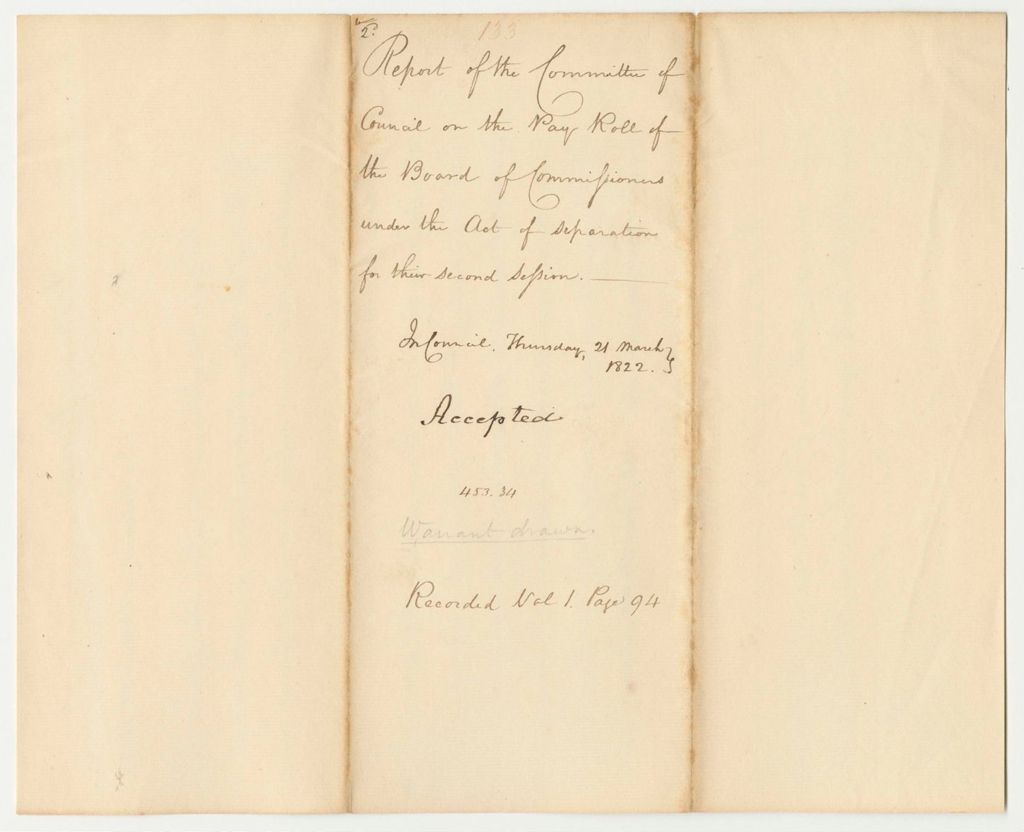 133
Report of the Committee of
Council on the Pay Roll of
the Board of Commissioners
under the Act of separation
for their second session.
In Council, Thursday, 21 March
1822.
Accepted
453.34
Warrant drawn.
Recorded Vol 1. Page 94